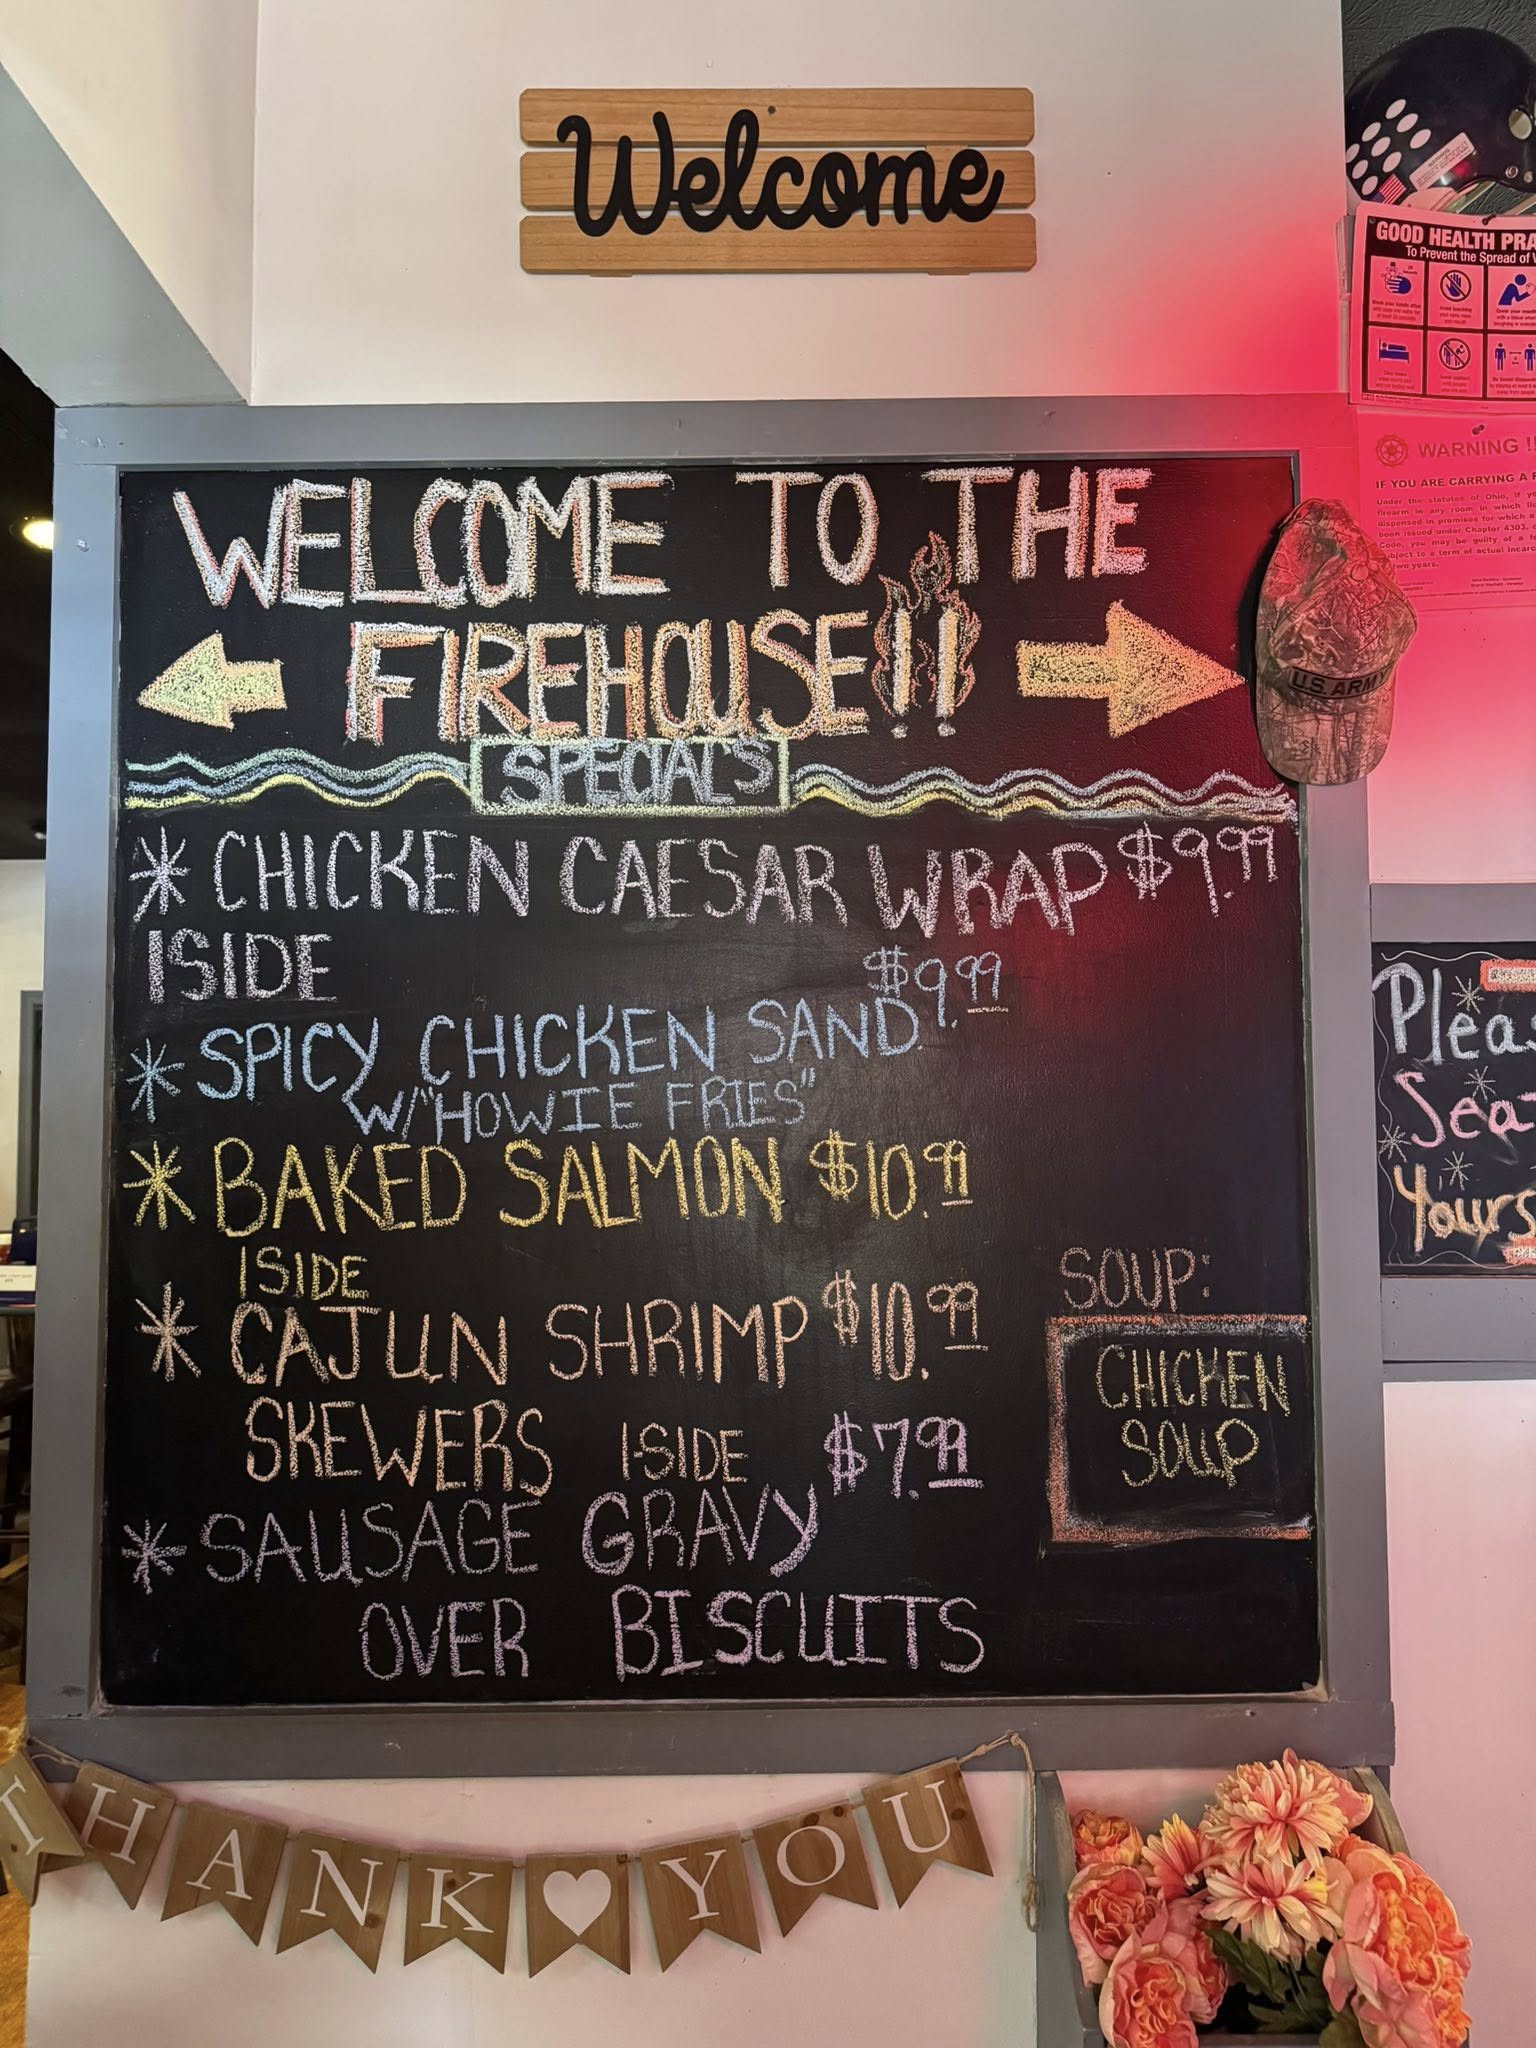 Welcome
WELCOME TO THE
FIREHOUSE!!
SPECIAL'S
* CHICKEN CAESAR WRAP $9.99
1SIDE
$9.99
* SPICY CHICKEN SAND.
W/"HOWIE FRIES"
* BAKED SALMON $10.99
1SIDE
* CAJUN SHRIMP $10.99
SKEWERS 1-SIDE
$7.99
* SAUSAGE GRAVY
OVER BISCUITS
SOUP:
CHICKEN
SOUP
THANK YOU
U.S. ARMY
GOOD HEALTH PRA
To Prevent the Spread of V
WARNING !!
IF YOU ARE CARRYING A F
Under the statutes of Ohio, if yo
firearm in any room in which li
dispensed in premises for which a
been issued under Chapter 4303.
Code, you may be guilty of a fe
subject to a term of actual incar
two years.
Pleas
Sea
Yours